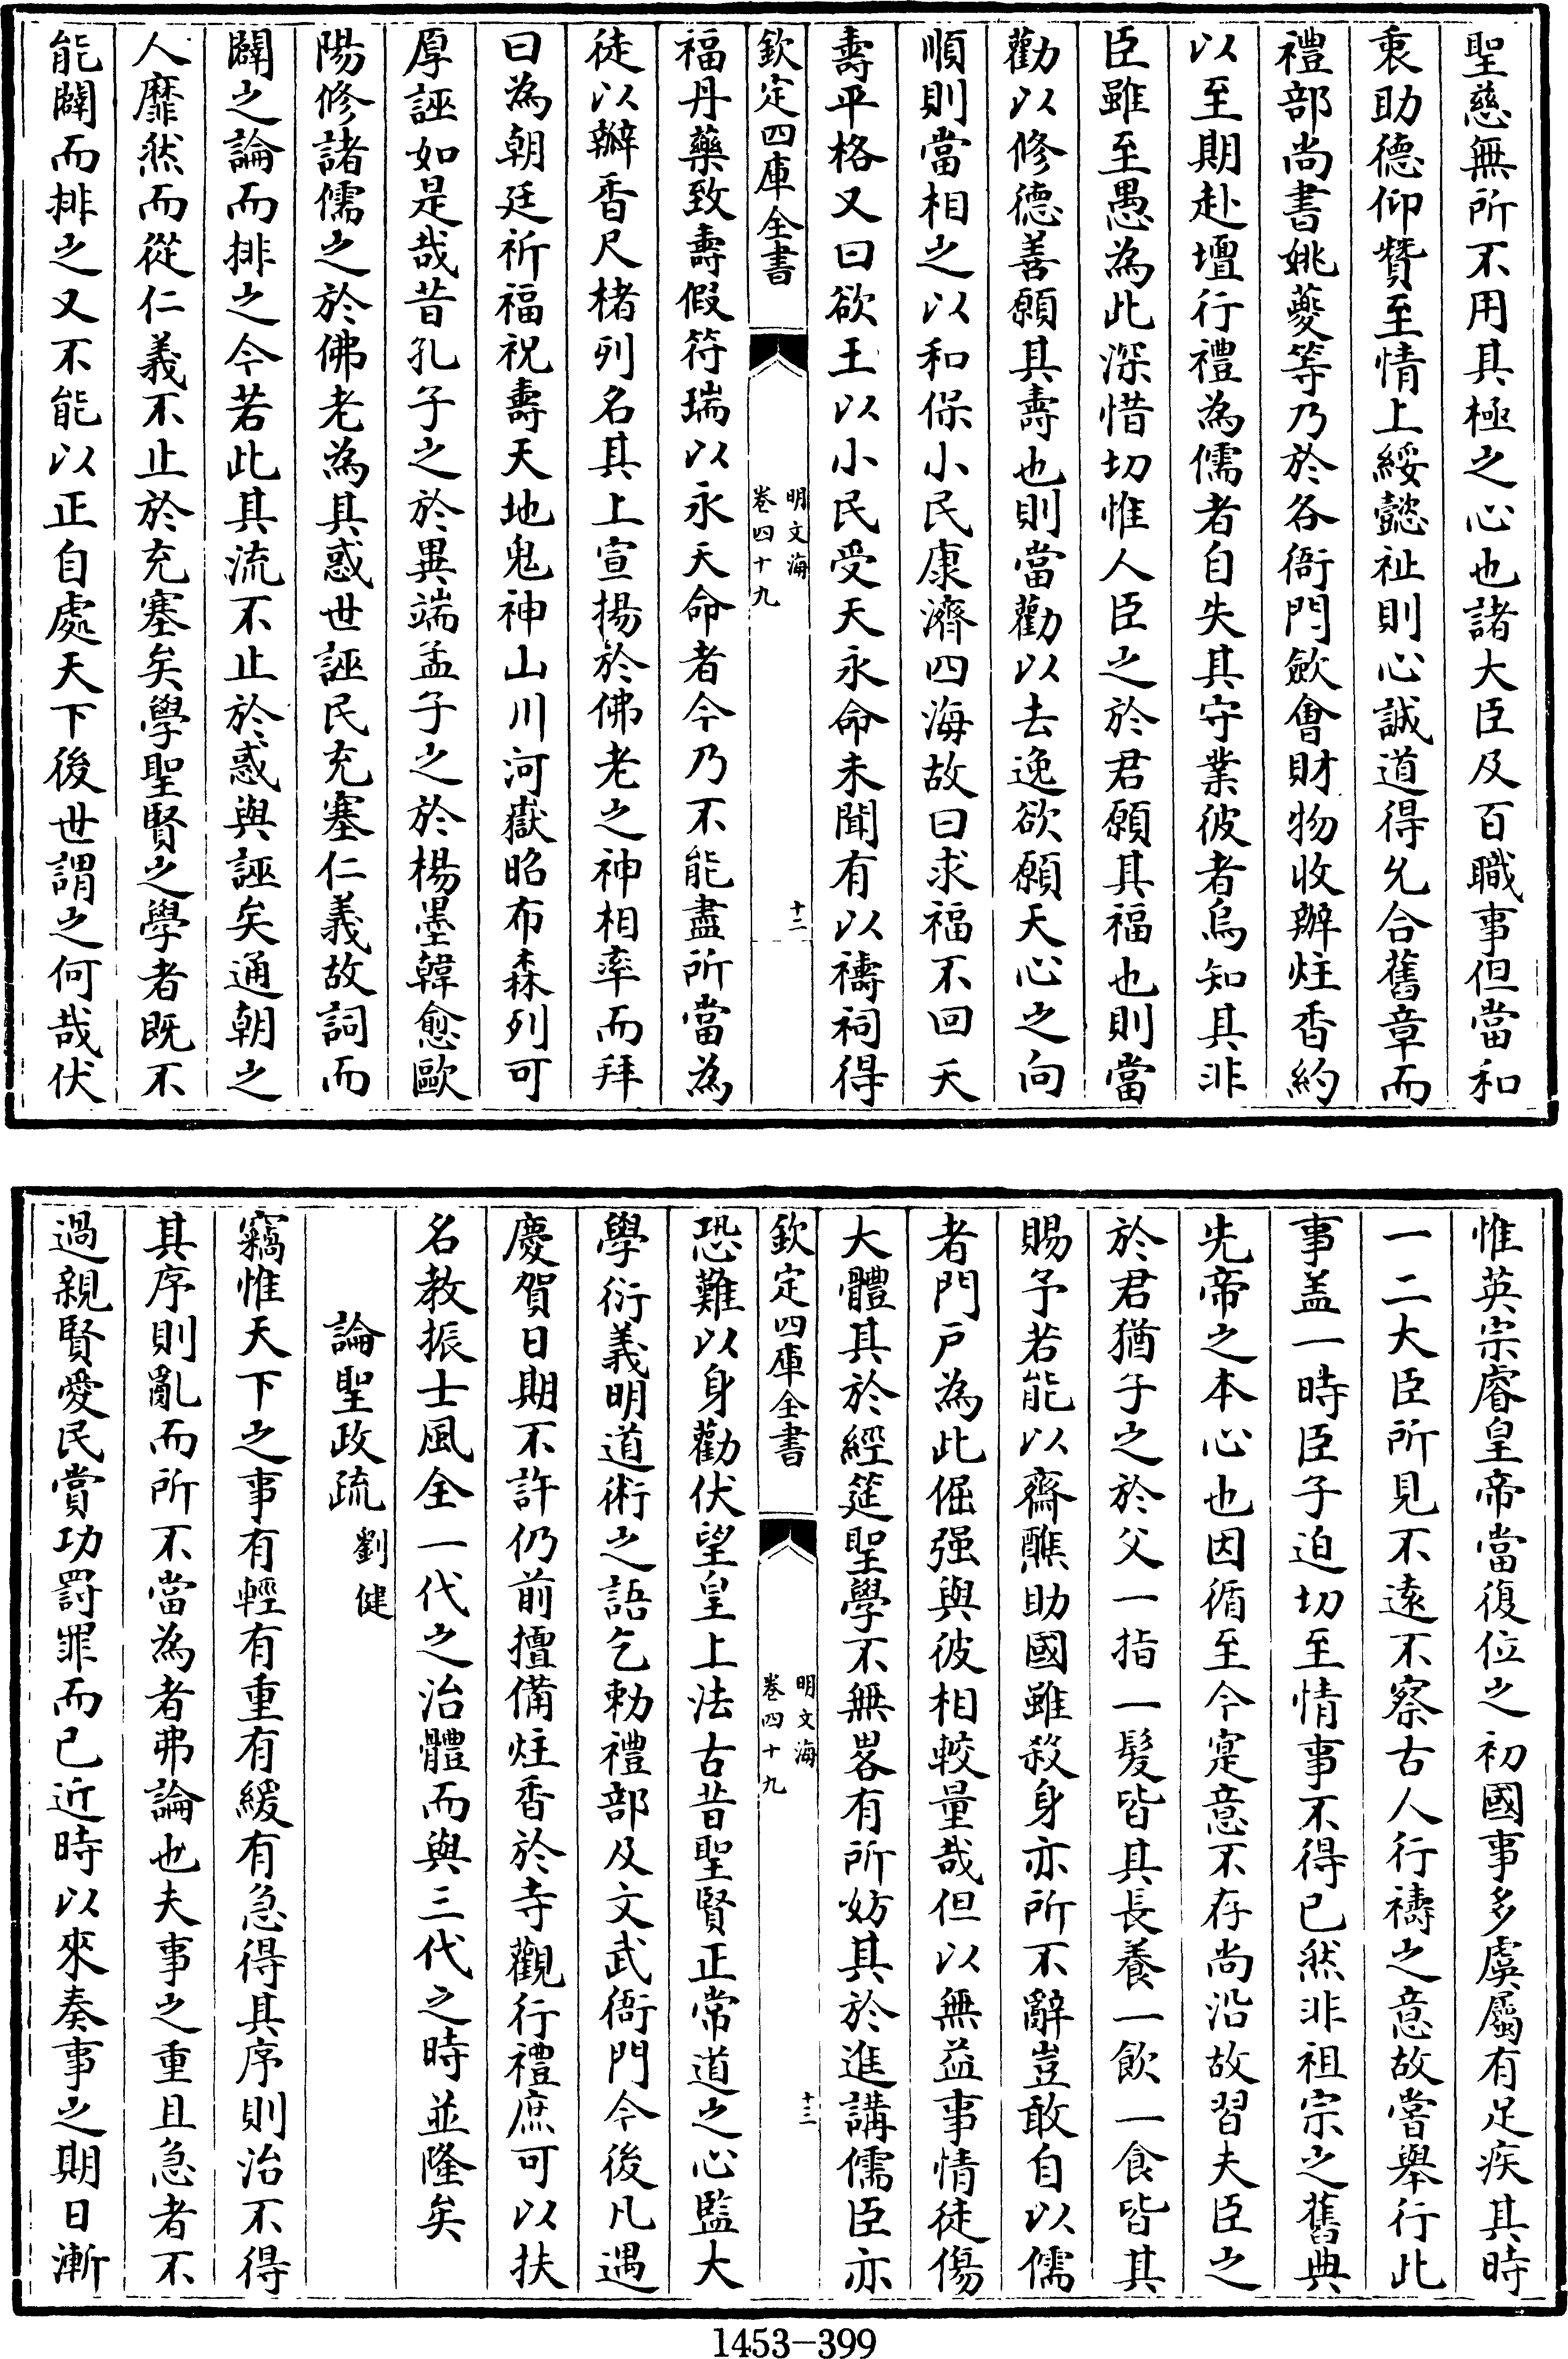 聖慈無所不用其極之心也諸大臣及百職事但當和
衷助德仰贊至情上綏懿祉則心誠道得允合舊章而
禮部尚書姚夔等乃於各衙門斂會財物收辦炷香約
以至期赴壇行禮為儒者自失其守業彼者烏知其非
臣雖至愚為此深惜切惟人臣之於君願其福也則當
勸以修德善願其壽也則當勸以去逸欲願天心之向
順則當相之以和保小民康濟四海故曰求福不回天
壽平格又曰欲王以小民受天永命未聞有以禱祠得
欽定四庫全書
明文海
卷四十九
十二
福丹藥致壽假符瑞以永天命者今乃不能盡所當為
徒以辦香尺楮列名其上宣揚於佛老之神相率而拜
曰為朝廷祈福祝壽天地鬼神山川河嶽昭布森列可
厚誣如是哉昔孔子之於異端孟子之於楊墨韓愈歐
陽修諸儒之於佛老為其惑世誣民充塞仁義故詞而
闢之論而排之今若此其流不止於惑與誣矣通朝之
人靡然而從仁義不止於充塞矣學聖賢之學者既不
能闢而排之又不能以正自處天下後世謂之何哉伏
惟英宗睿皇帝當復位之初國事多虞屬有足疾其時
一二大臣所見不遠不察古人行禱之意故嘗舉行此
事盖一時臣子迫切至情事不得已然非祖宗之舊典
先帝之本心也因循至今寔意不存尚沿故習夫臣之
於君猶子之於父一指一髮皆其長養一飲一食皆其
賜予若能以齋醮助國雖殺身亦所不辭豈敢自以儒
者門戶為此倔强與彼相較量哉但以無益事情徒傷
大體其於經筵聖學不無畧有所妨其於進講儒臣亦
欽定四庫全書
明文海
卷四十九
十三
恐難以身勸伏望皇上法古昔聖賢正常道之心監大
學衍義明道術之語乞勅禮部及文武衙門今後凡遇
慶賀日期不許仍前擅備炷香於寺觀行禮庶可以扶
名教振士風全一代之治體而與三代之時並隆矣
論聖政疏 劉健
竊惟天下之事有輕有重有緩有急得其序則治不得
其序則亂而所不當為者弗論也夫事之重且急者不
過親賢愛民賞功罰罪而已近時以來奏事之期日漸
1453-399